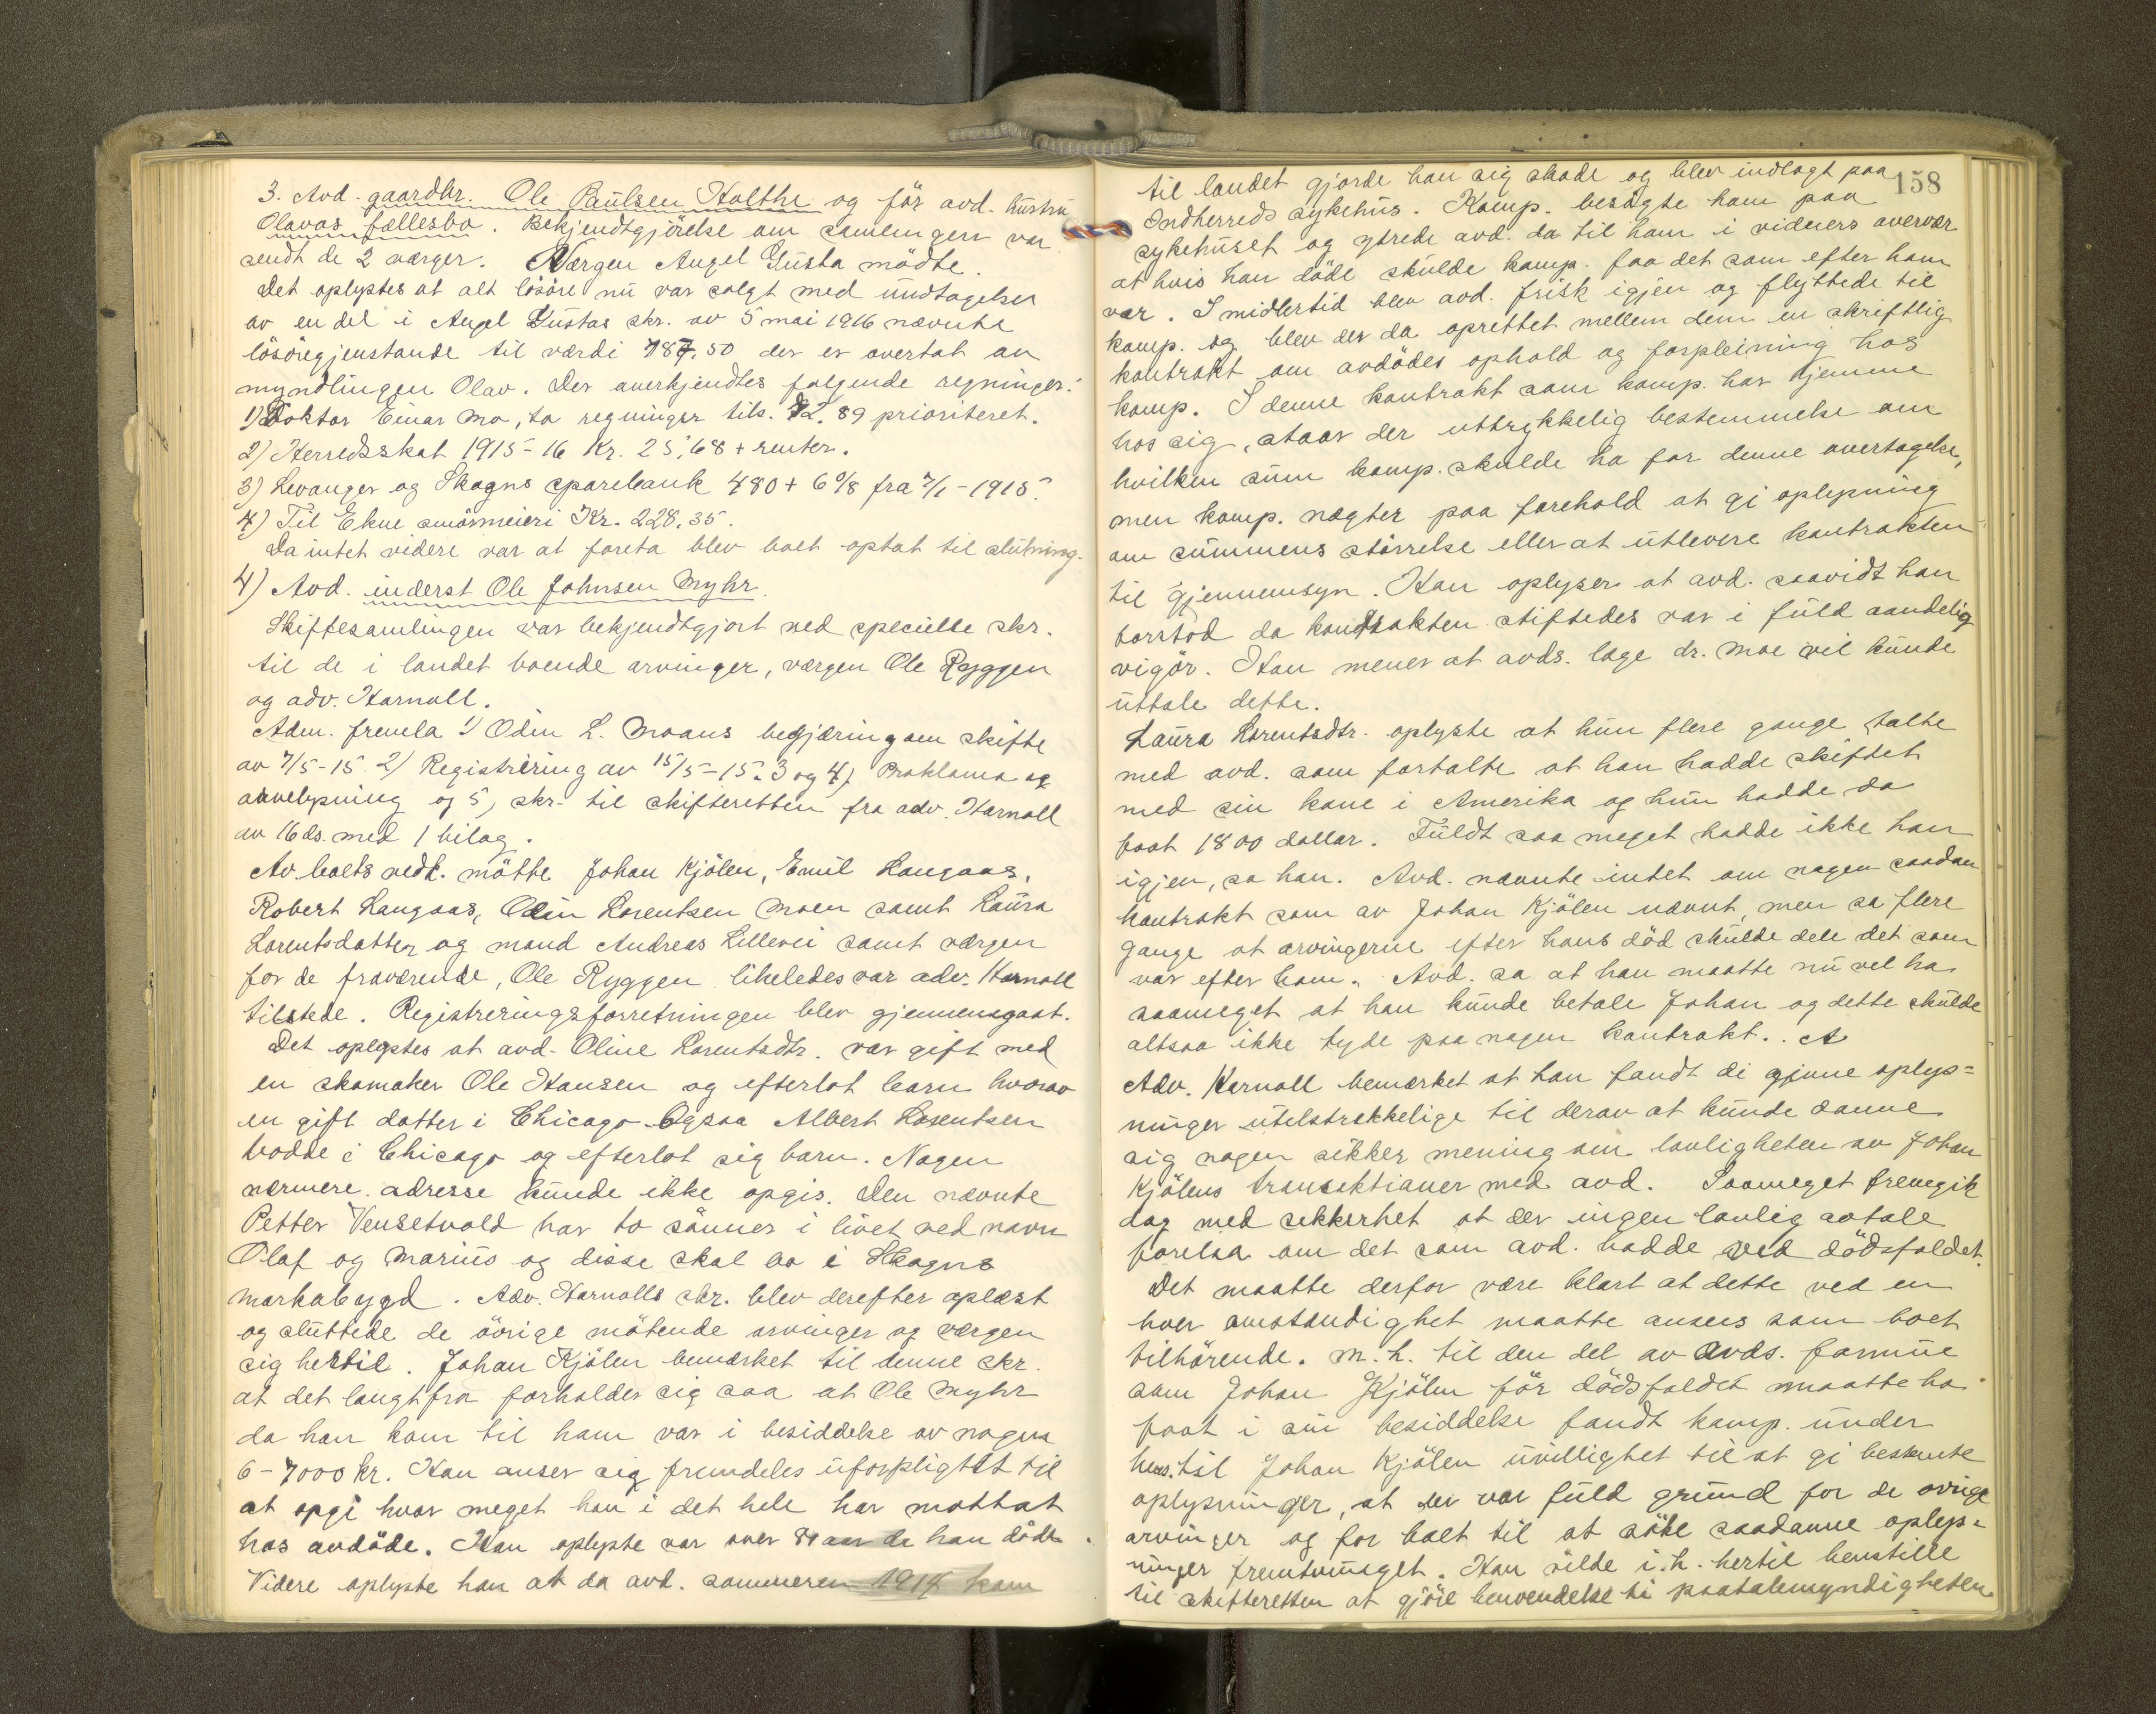 3. Avd. gaardbr. Ole Paulsen Holthe og før avd. hustru
Olavas fællesbo. Bekjendtgjörelse om samlingen var
sendt de 2 værger. Værgen Angel Gusta mödte.
Det oplystes at alt lösöre nu var solgt med undtagelse
av en del i Angel Gustas skr. av 5 mai 1916 nævnte
lösöregjenstande til værdi 787.50 der er overtat av
myndlingen Olav. Der anerkjendtes følgende regninger:
1) Doktor Einar Mo, to regninger tils. 72.89 prioriteret.
2) Herredsskat 1915-16 Kr. 25.68 + renter.
3) Levanger og Skogns sparebank 480 + 6 % fra 7/1-1915.
4) Til Ekne smörmeieri Kr. 228.35.
Da intet videre var at foreta blev boet optat til slutning.
4) Avd. inderst Ole Johnsen Myhr.
Skiftesamlingen var bekjendtgjort ved specielle skr.
til de i landet boende arvinger, værgen Ole Ryggen
og adv. Harnoll.
Adm. fremla 1) Odin L. Moans begjæring om skifte
av 7/5-15. 2) Registrering av 15/5-15. 3 og 4) Proklama og
arvelysning og 5) skr. til skifteretten fra adv. Harnoll
av 16 ds. med 1 bilag.
Av boets vedk. mötte Johan Kjölen, Emil Langaas,
Robert Langaas, Odin Lorentsen Moen samt Laura
Lorentsdatter og mand Andreas Lillevei samt værgen
for de fraværende, Ole Ryggen likeledes var adv. Harnoll
tilstede. Registreringsforretningen blev gjennemgaat.
Det oplystes at avd. Oline Lorentsdtr. var gift med
en skomaker Ole Hansen og efterlot barn hvorav
en gift datter i Chicago. Ogsaa Albert Lorentsen
bodde i Chicago og efterlot sig barn. Nogen
nærmere adresse kunde ikke opgis. Den nævnte
Petter Vensetvold har to sönner i livet ved navn
Olaf og Marius og disse skal bo i Skogns
markabygd. Adv. Harnolls skr. blev derefter oplæst
og sluttede de övrige mötende arvinger og værgen
sig hertil. Johan Kjölen bemærket til denne skr.
at det langtfra forholder sig saa at Ole Myhr
da han kom til ham var i besiddelse av nogen
6-7000 kr. Han anser sig fremdeles uforpligtet til
at opgi hvor meget han i det hele har mottat
hos avdöde. Han oplyste var over 80 aar da han döde.
Videre oplyste han at da avd. sommeren 1914 kom
158
til landet gjorde han sig skade og blev indlagt paa
Indherreds sykehus. Komp. besögte ham paa
sykehuset og ytrede avd. da til ham i vidners overvær
at hvis han döde skulde komp. faa det som efter ham
var. Imidlertid blev avd. frisk igjen og flyttede til
komp. og blev der da oprettet mellem dem en skriftlig
kontrakt om avdödes ophold og forpleining hos
komp. I denne kontrakt som komp. har hjemme
hos sig, staar der uttrykkelig bestemmelse om
hvilken sum komp. skulde ha for denne overtagelse,
men komp. nægter paa forehold at gi oplysning
om summens störrelse eller at utlevere kontrakten
til gjennemsyn. Han oplyser at avd. saavidt han
forstod da kontrakten stiftedes var i fuld aandelig
vigör. Han mener at avds. læge dr. Moe vil kunde
uttale dette.
Laura Lorentsdtr. oplyste at hun flere gange talte
med avd. som fortalte at han hadde skiftet
med sin kone i Amerika og hun hadde da
faat 1800 dollar. Fuldt saa meget hadde ikke han
igjen, sa han. Avd. nævnte intet om nogen saadan
kontrakt som av Johan Kjölen nævnt, men sa flere
gange at arvingerne efter hans död skulde dele det som
var efter ham. Avd. sa at han maatte nu vel ha
saameget at han kunde betale Johan og dette skulde
altsaa ikke tyde paa nogen kontrakt. . A
Adv. Harnoll bemærket at han fandt di gjivne oplys=
ninger utilstrækkelige til derav at kunde danne
sig nogen sikker mening om lovligheten av Johan
Kjölens transaktioner med avd. Saameget fremgik
dog med sikkerhet at der ingen lovlig avtale
forelaa om det som avd. hadde ved dödsfaldet.
Det maatte derfor være klart at dette ved en
hver omstændighet maatte ansees som boet
tilhörende. M. h. til den del av avds. formue
som Johan Kjölen för dödsfaldet maatte ha
faat i sin besiddelse fandt komp. under
hens. til Johan Kjölen uvillighet til at gi bestemte
oplysninger, at der var fuld grund for de övrige
arvinger og for boet til at söke saadanne oplys=
ninger fremtvunget. Han vilde i. h. hertil henstille
til skifteretten at gjöre henvendelse til paatalemyndigheten